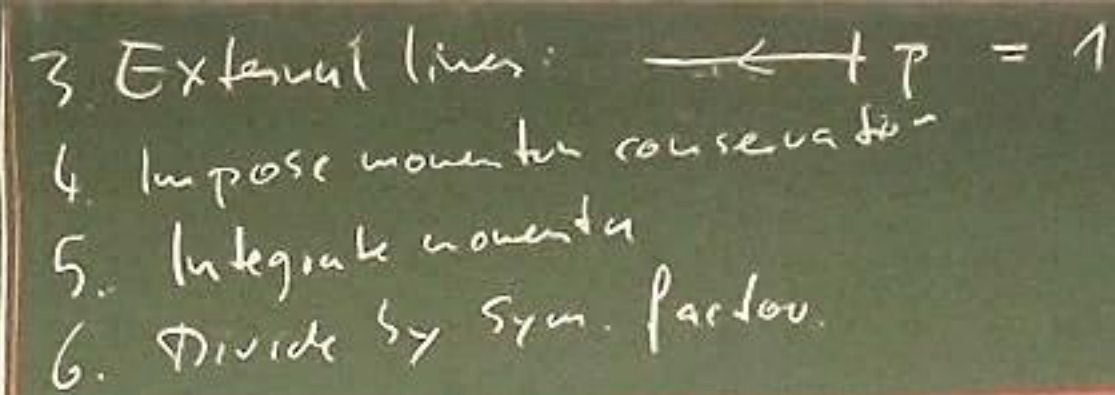 3. External lines: p = 1
4. Impose momentum conservation
5. Integrate momenta
6. Divide by sym. factor.